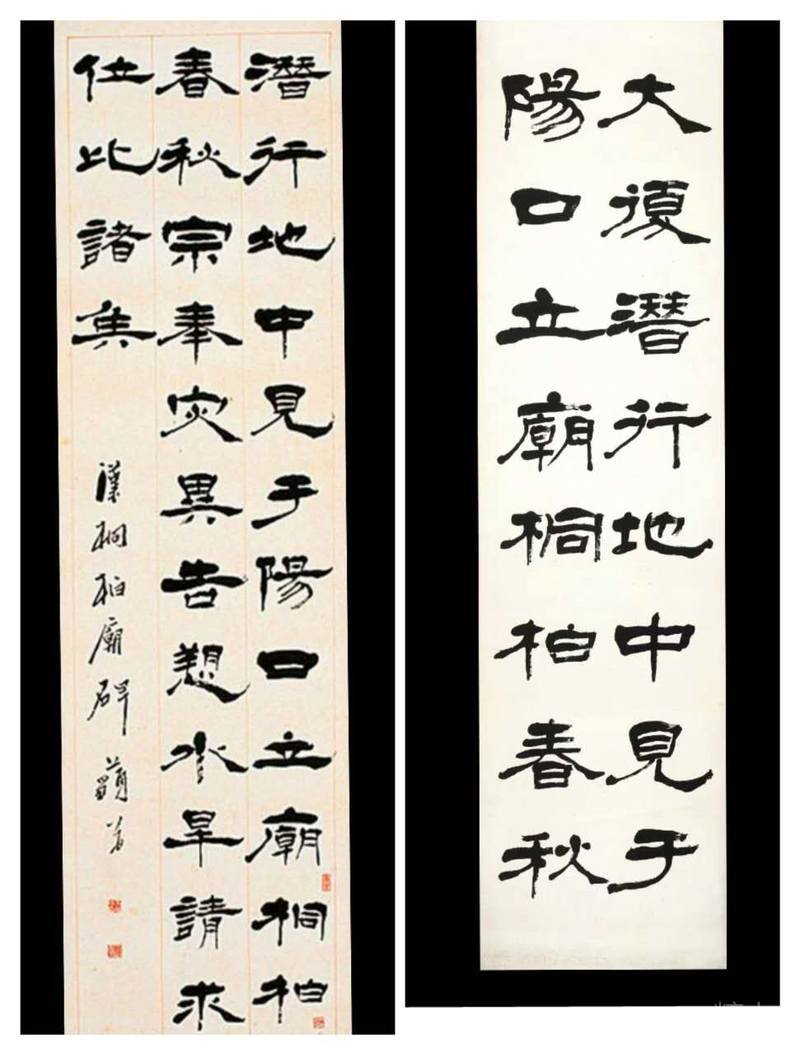 潛行地中見于陽口立廟桐柏
春秋宗奉灾異告愬水旱請求
位比諸矦
漢桐柏廟碑
大復潛行地中見于
陽口立廟桐柏春秋